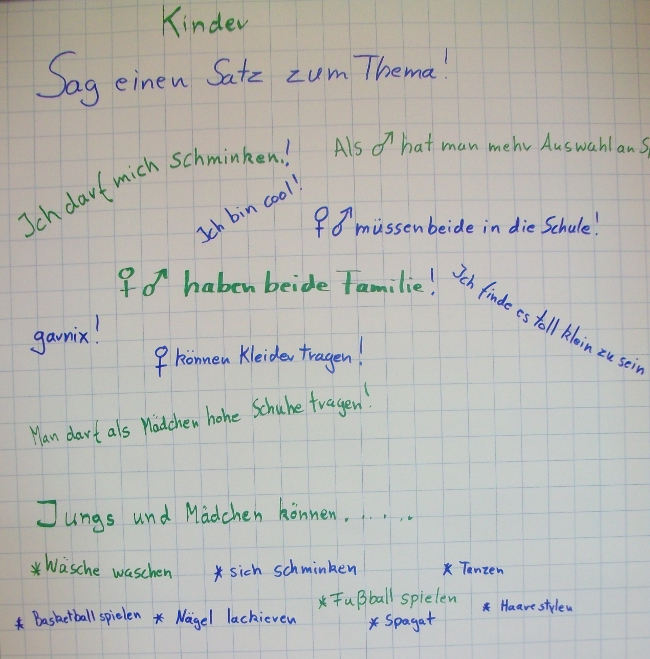 Kinder
Sag einen Satz zum Thema!
Ich darf mich schminken!
Als ♂ hat man mehr Auswahl an
Ich bin cool!
♀♂ müssen beide in die Schule!
♀♂ haben beide Familie!
Ich finde es toll klein zu sein
garnix!
♀ können Kleider tragen!
Man darf als Mädchen hohe Schuhe tragen!
Jungs und Mädchen können......
* Wäsche waschen * sich schminken * Tanzen
* Basketball spielen * Nägel lackieren * Fußball spielen * Spagat * Haare stylen